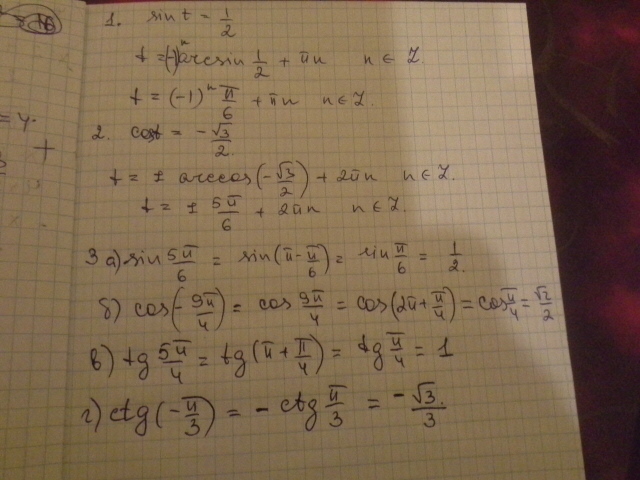 1. sin t = 1/2
t = (-1)ⁿ arcsin 1/2 + πn n ∈ Z.
t = (-1)ⁿ π/6 + πn n ∈ Z.
= 4.
2. cos t = -√3/2.
t = ± arccos(-√3/2) + 2πn n ∈ Z.
t = ± 5π/6 + 2πn n ∈ Z.
3 а) sin 5π/6 = sin(π - π/6) = sin π/6 = 1/2.
б) cos(-9π/4) = cos 9π/4 = cos(2π + π/4) = cos π/4 = √2/2
в) tg 5π/4 = tg(π + π/4) = tg π/4 = 1
г) ctg(-π/3) = - ctg π/3 = -√3/3